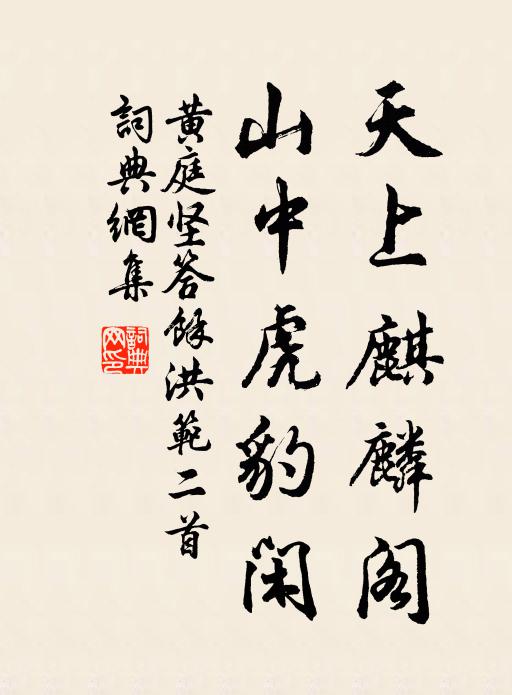 天上麒麟阁
山中虎豹闲
黄庭坚答餘洪範二首
詞典網集
詞典
网印